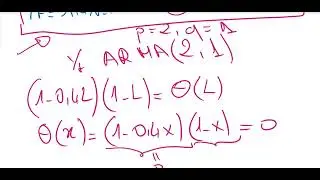 p=2, q=1
Yt ARMA(2,1)
(1-0,4L)(1-L)=Θ(L)
Θ(x)=(1-0,4x)(1-x)=0